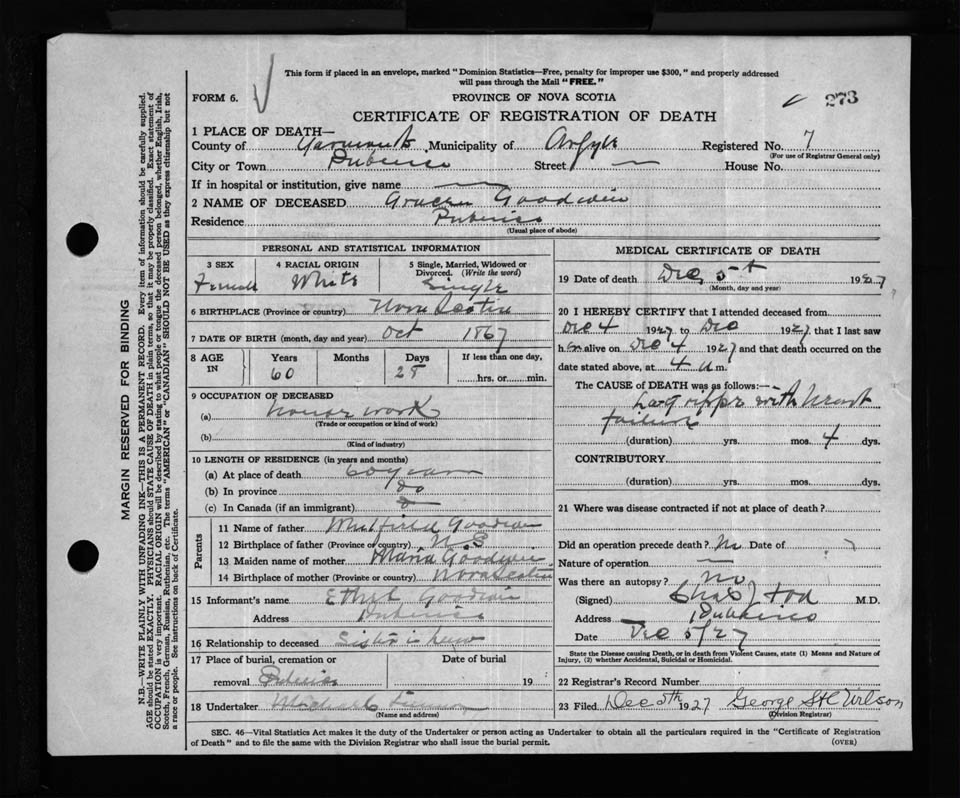 This form if placed in an envelope, marked "Dominion Statistics—Free, penalty for improper use $300," and properly addressed
will pass through the Mail "FREE."
FORM 6.
PROVINCE OF NOVA SCOTIA
273
CERTIFICATE OF REGISTRATION OF DEATH
1 PLACE OF DEATH—
County of Yarmouth Municipality of Argyle Registered No. 7
(For use of Registrar General only)
City or Town Pubnico Street — House No.
If in hospital or institution, give name —
2 NAME OF DECEASED Goodwin
Residence Pubnico
(Usual place of abode)
PERSONAL AND STATISTICAL INFORMATION
3 SEX Female
4 RACIAL ORIGIN White
5 Single, Married, Widowed or Divorced. (Write the word) Single
6 BIRTHPLACE (Province or country) Nova Scotia
7 DATE OF BIRTH (month, day and year) Oct 1867
8 AGE IN Years 60 Months Days 28 If less than one day, hrs. or min.
9 OCCUPATION OF DECEASED
(a) house work
(Trade or occupation or kind of work)
(b)
(Kind of industry)
10 LENGTH OF RESIDENCE (in years and months)
(a) At place of death 60 years
(b) In province do
(c) In Canada (if an immigrant)
Parents
11 Name of father Goodwin
12 Birthplace of father (Province or country) N.S
13 Maiden name of mother Maria Goodwin
14 Birthplace of mother (Province or country) Nova Scotia
15 Informant's name Ethel Goodwin
Address Pubnico
16 Relationship to deceased Sister in law
17 Place of burial, cremation or removal Pubnico
Date of burial 19
18 Undertaker Michael
(Name and address)
MEDICAL CERTIFICATE OF DEATH
19 Date of death Dec 5th 1927
(Month, day and year)
20 I HEREBY CERTIFY that I attended deceased from
Dec 4 1927 to Dec 1927, that I last saw
h alive on Dec 4 1927 and that death occurred on the
date stated above, at 4 a.m.
The CAUSE of DEATH was as follows:—
La grippe with heart
failure
(duration) yrs. mos. 4 dys.
CONTRIBUTORY
(duration) yrs. mos. dys.
21 Where was disease contracted if not at place of death?
Did an operation precede death? No Date of
Nature of operation —
Was there an autopsy? no
(Signed) M.D.
Address Pubnico
Date Dec 5/27
State the Disease causing Death, or in death from Violent Causes, state (1) Means and Nature of
Injury, (2) whether Accidental, Suicidal or Homicidal.
22 Registrar's Record Number
23 Filed Dec 5th 1927 George Wilson
(Division Registrar)
SEC. 46—Vital Statistics Act makes it the duty of the Undertaker or person acting as Undertaker to obtain all the particulars required in the "Certificate of Registration
of Death" and to file the same with the Division Registrar who shall issue the burial permit. (OVER)
MARGIN RESERVED FOR BINDING
N.B.—WRITE PLAINLY WITH UNFADING INK—THIS IS A PERMANENT RECORD. Every item of information should be carefully supplied.
AGE should be stated EXACTLY. PHYSICIANS should STATE CAUSE OF DEATH in plain terms, so that it may be properly classified. Exact statement of
OCCUPATION is very important. RACIAL ORIGIN will be described by stating to what people or tongue the deceased person belonged, whether English, Irish,
Scotch, French, German, Russian, Ruthenian, etc. The terms "AMERICAN" or "CANADIAN" SHOULD NOT BE USED as they express citizenship but not
a race or people. See instructions on back of Certificate.